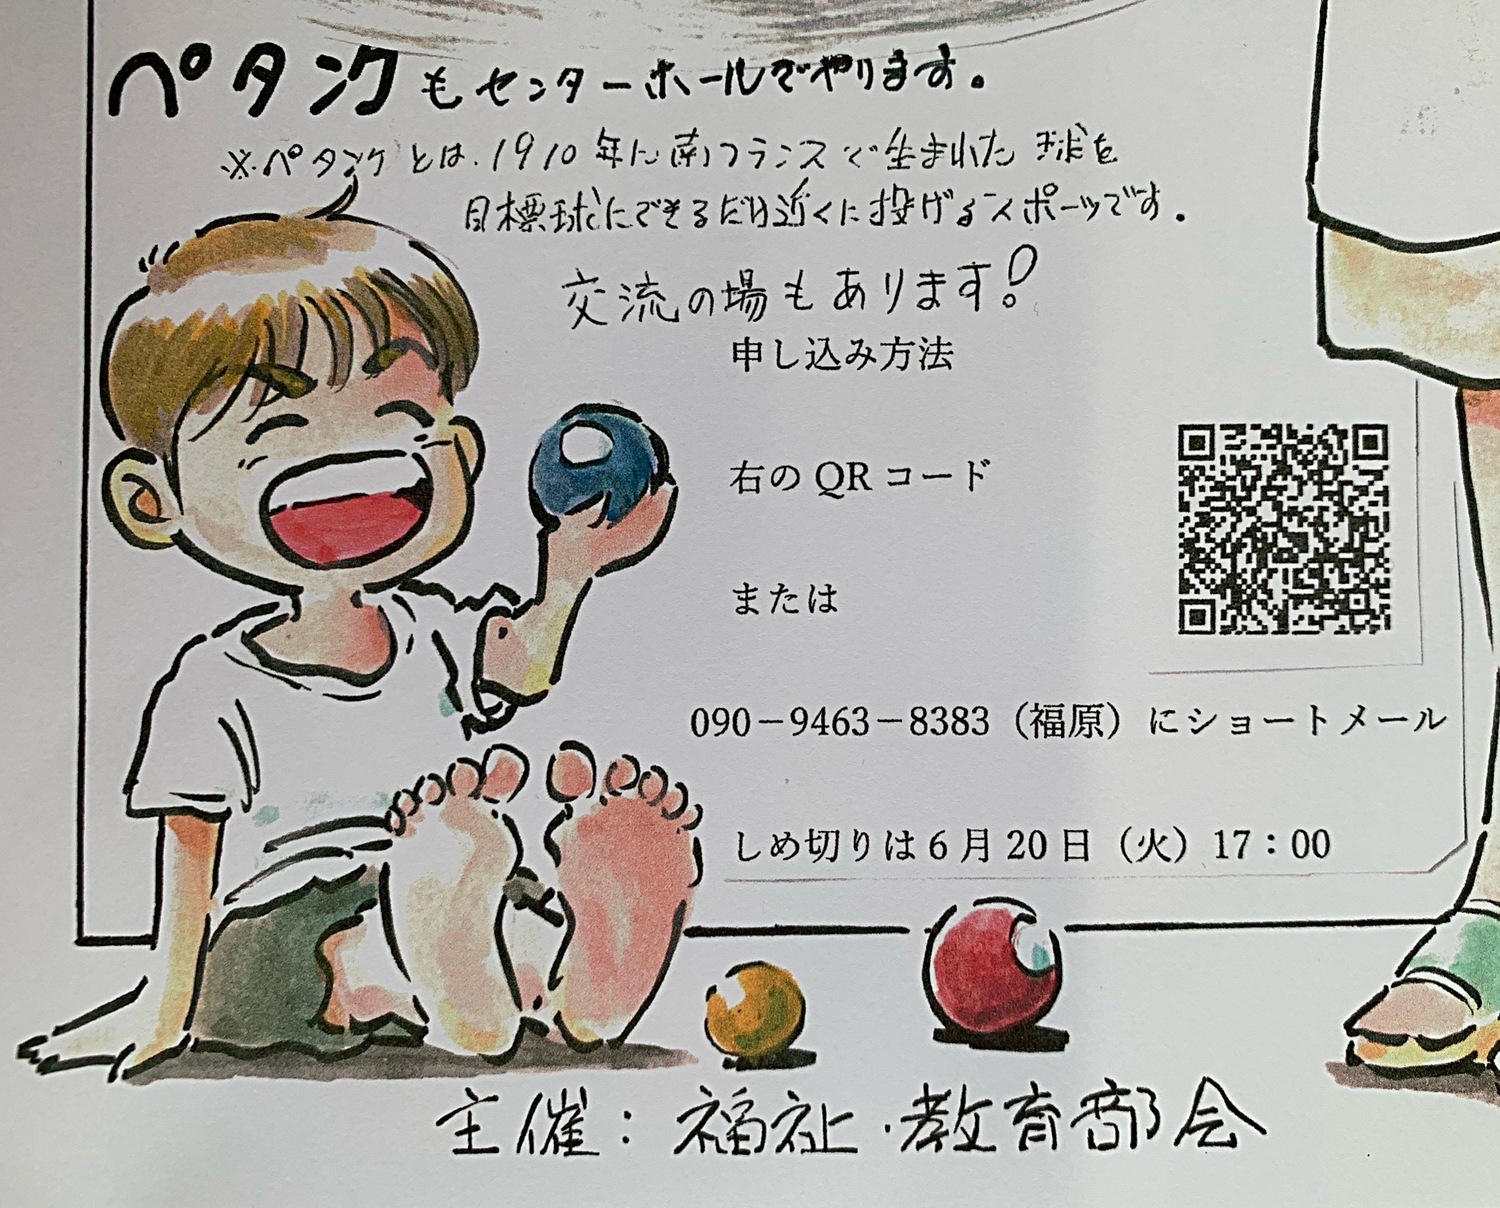 ペタンクもセンターホールでやります。
※ペタンクとは、1910年に南フランスで生まれた 球を
目標球にできるだけ近くに投げるスポーツです。
交流の場もあります!
申し込み方法
右のQRコード
または
090－9463－8383（福原）にショートメール
しめ切りは6月20日（火）17：00
主催：福祉・教育部会